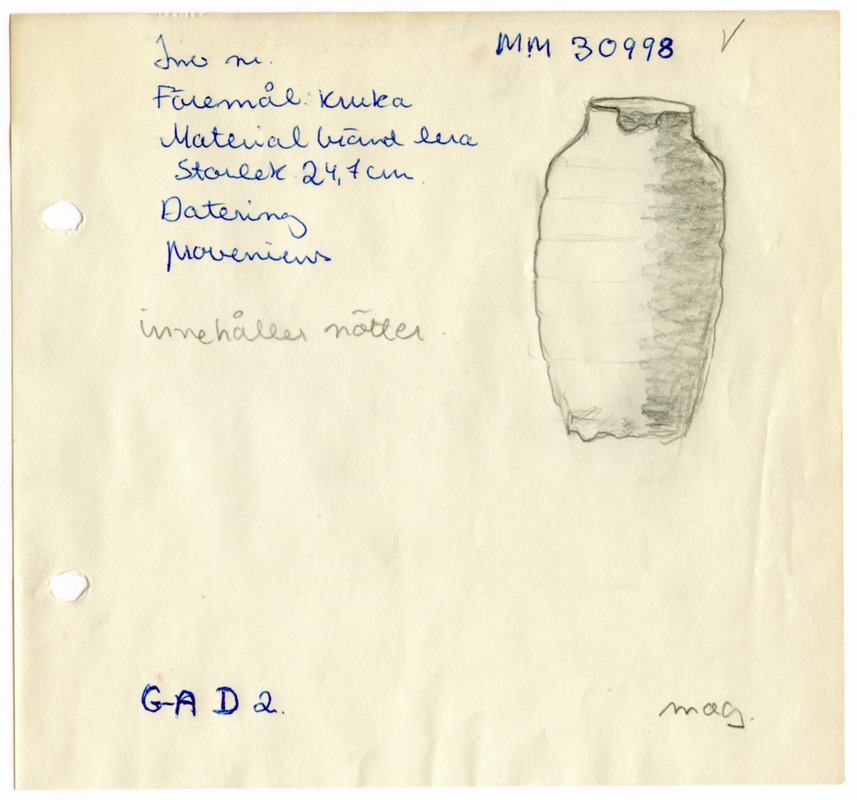 Inv nr.
MM 30998
Föremål: kruka
Material bränd lera
Storlek 24,7 cm
Datering
proveniens
innehåller nötter.
GA D 2.
mag.